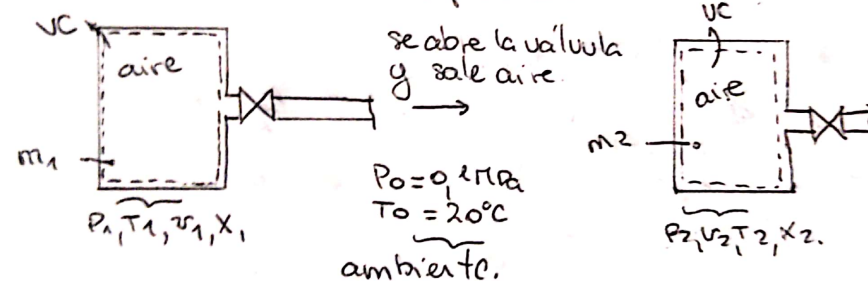 VC
aire
m1
P1, T1, v1, x1
se abre la válvula
y sale aire.
P0 = 0,1 MPa
T0 = 20°C
ambiente.
VC
aire
m2
P2, v2, T2, x2.